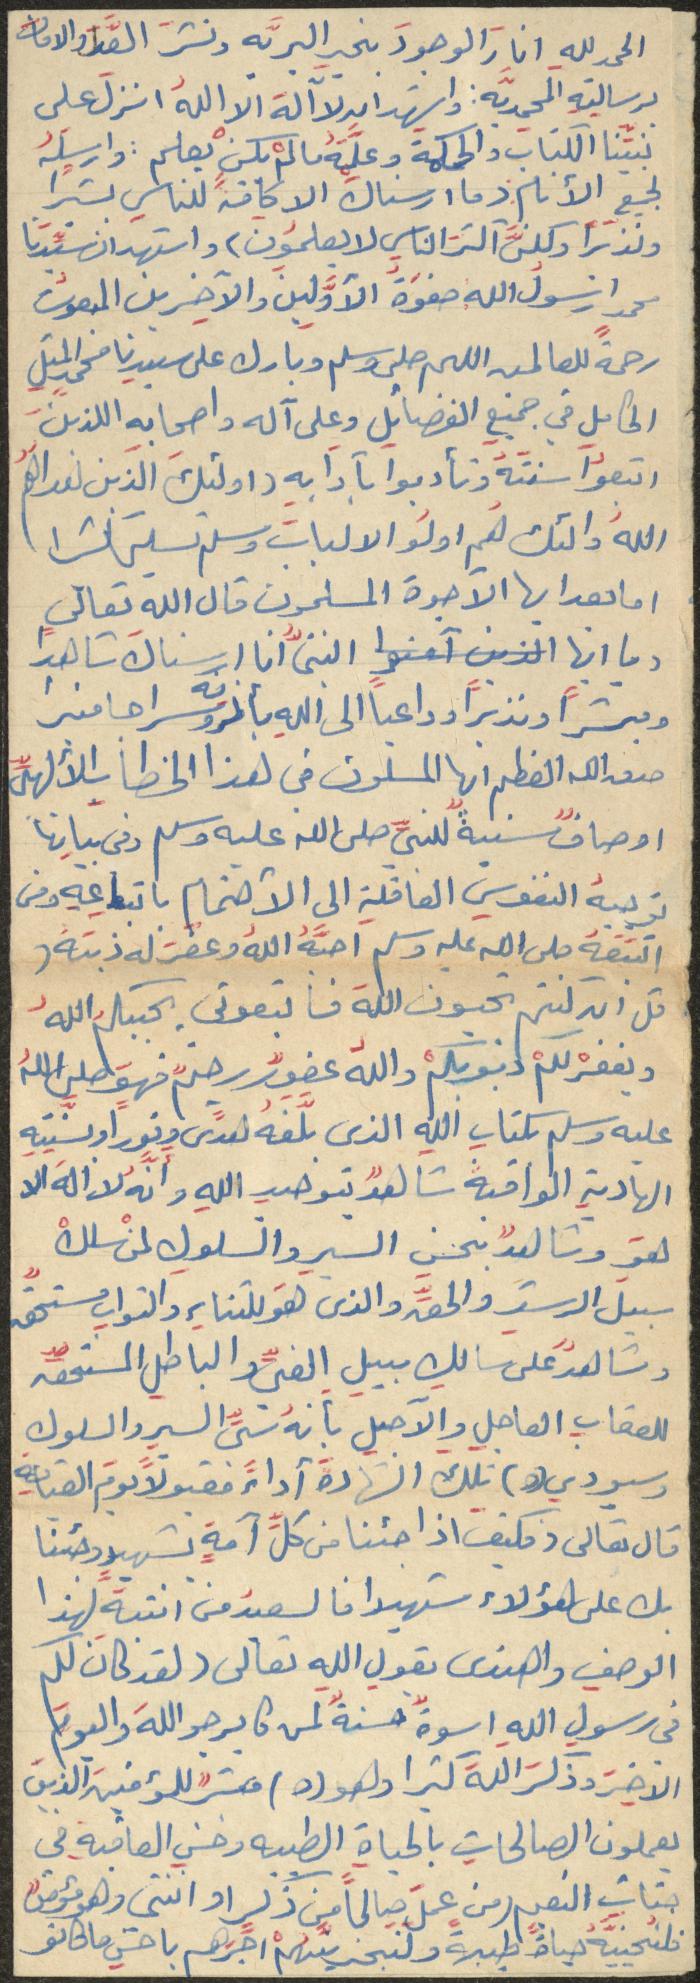 الحمد لله انار الوجود بخير البريه ونشر العدل والامان
برسالته المحمديه: واشهد ان لا اله الا الله انزل على
نبينا الكتاب والحكمة وعلمه مالم يكن يعلم: وارسله
لجميع الأنام (وما ارسناك الا كافة للناس بشيرا
ونذيرا ولكن اكثر الناس لا يعلمون) واشهد ان سيدنا
محمدا رسول الله صفوة الأولين والآخرين المبعوث
رحمة للعالمين اللهم صلي وسلم وبارك على سيدنا محمد المثل
الكامل في جميع الفضائل وعلى آله واصحابه اللذين
اتبعوا سنته وتأدبوا بآدابه (اولئك الذين هداهم
الله والئك هم اولو الالباب وسلم تسليما كثيرا)
اما بعد ايها الآخوة المسلمون قال الله تعالى
(يا ايها الذين آمنوا النبي انا ارسناك شاهدا
ومبشرا ونذيرا وداعيا الى الله بأذنه وسراجا منيرا
صدق الله العظيم ايها المسلمون في هذا الخطاب الألهي
اوصاف سنية للنبي صلى الله عليه وسلم وفي بيانها
توجيه النفوس الغافلة الى الأهتمام باتباعه ومن
اتبعه صلى الله عليه وسلم احبه الله وغفر له ذنبه (
قل ان كنتم تحبون الله فاتبعوني يحببكم الله
ويغفر لكم ذنوبكم والله غفور رحيم فهو صلى الله
عليه وسلم بكتاب الله الذي بلغه هدى ونورا وبسنته
الهادية الواقية شاهد بتوحيد الله وأنه لا اله الا
هو وشاهد بحسن السير والسلوك لمن سلك
سبيل الرشد والحق والذي هو للثناء والثواب مستحق
وشاهد على سالك سبيل الغي والباطل المستحق
للعقاب العاجل والآجل بأنه سيئ السير والسلوك
وسيؤدي (ص) تلك الشهادة أداء مقبولا يوم القيامة
قال تعالى (فكيف اذا جئنا من كل أمة بشهيد وجئنا
بك على هؤلاء شهيدا فالسعيد من انتبه لهذا
الوصف واهتدى بقول الله تعالى (لقد كان لكم
في رسول الله اسوة حسنة لمن كا يرجو الله واليوم
الآخر وذكر الله كثيرا وهو (ص) مبشر للمؤمنين الذين
يعملون الصالحات بالحياة الطيبه وحسن العاقبة في
جنات النعيم (من عمل صالحا من ذكر او انثى وهو مؤمن
فلنحيينه حياة طيبة ولنجزينهم اجرهم باحسن ما كانو